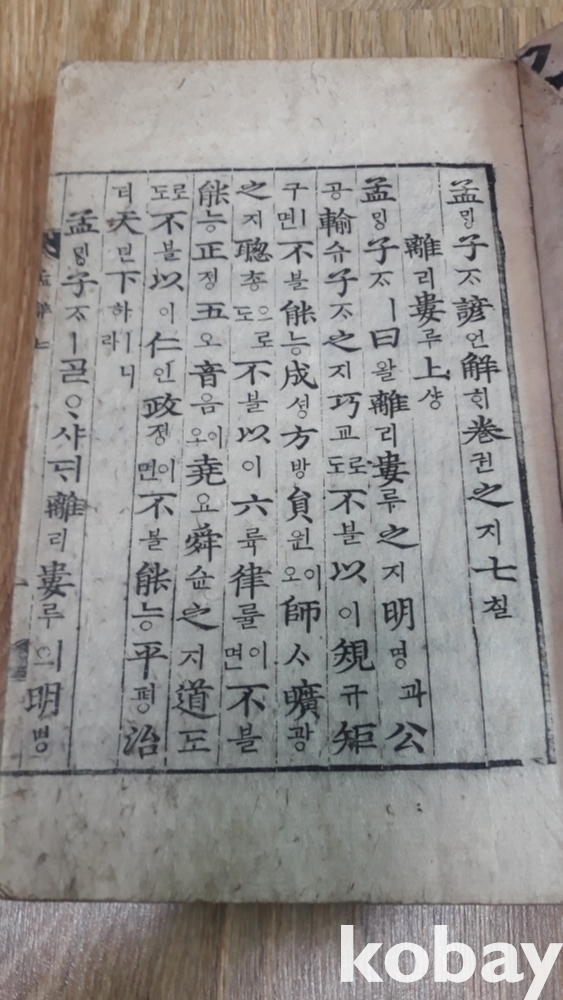 孟ᄆᆡᆼ子ᄌᆞ諺언解ᄒᆡ卷권之지七칠
離리婁루上샹
孟ᄆᆡᆼ子ᄌᆞㅣ曰왈離리婁루之지明명과公
공輸슈子ᄌᆞ之지巧교로도不불以이規규矩
구ㅣ면不불能능成셩方방員원이오師ᄉᆞ曠광
之지聰총으로도不불以이六륙律률이면不불
能능正정五오音음이오堯요舜슌之지道도
로도不불以이仁인政졍이면不불能능平평治
티天텬下하ㅣ니라
孟ᄆᆡᆼ子ᄌᆞㅣᄀᆞᆯᄋᆞ샤ᄃᆡ離리婁루의明명
kobay